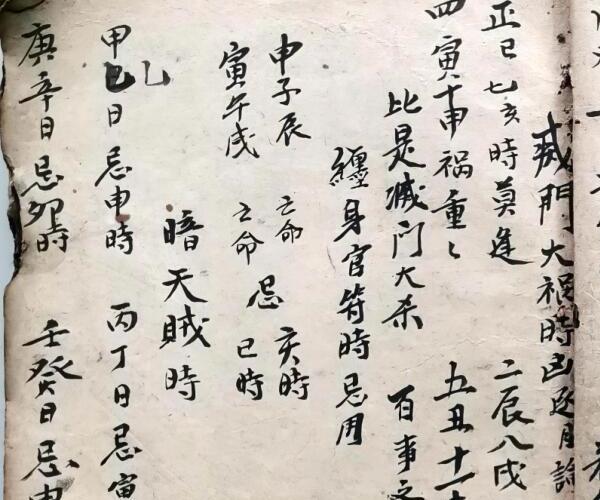 滅門大禍時凶逐月論
正巳七亥時莫逢 二辰八戌
四寅十申禍重〻 五丑十一
比是滅门大杀 百事
纏身官符時忌用
申子辰 亡命 忌 亥時
寅午戌 亡命 巳時
暗天賊時
甲乙日忌申時 丙丁日忌寅
庚辛日忌卯時 壬癸日忌申